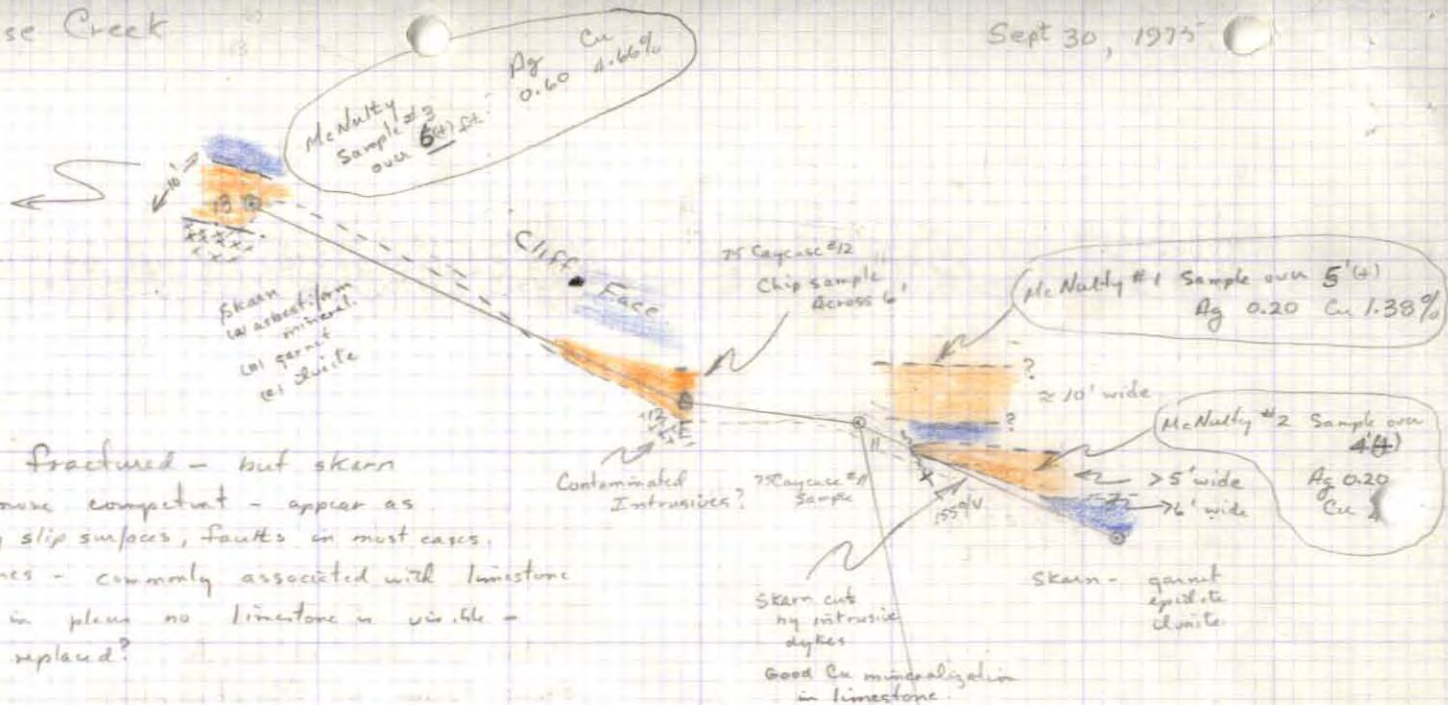 se Creek
Sept 30, 1975
McNulty
Sample #3
over 6(+) ft.
Ag Cu
0.60 4.66%
10'
13
xxxxx
xxx
Skarn
(a) asbestiform
mineral.
(b) garnet
(c) ilvaite
Cliff Face
75 Caycuse #12
Chip sample
Across 6'
McNulty #1 Sample over 5'(+)
Ag 0.20 Cu 1.38%
?
≈ 10' wide
?
McNulty #2 Sample over
4'(+)
Ag 0.20
Cu
> 5' wide
> 6' wide
12
11
Contaminated
Intrusives?
75 Caycuse #11
Sample
155°/V
Skarn cut
by intrusive
dykes
Good Cu mineralization
in limestone.
Skarn - garnet
epidote
ilvaite.
fractured - but skarn
more competent - appear as
slip surfaces, faults in most cases.
nes - commonly associated with limestone
in places no limestone is visible -
replaced?